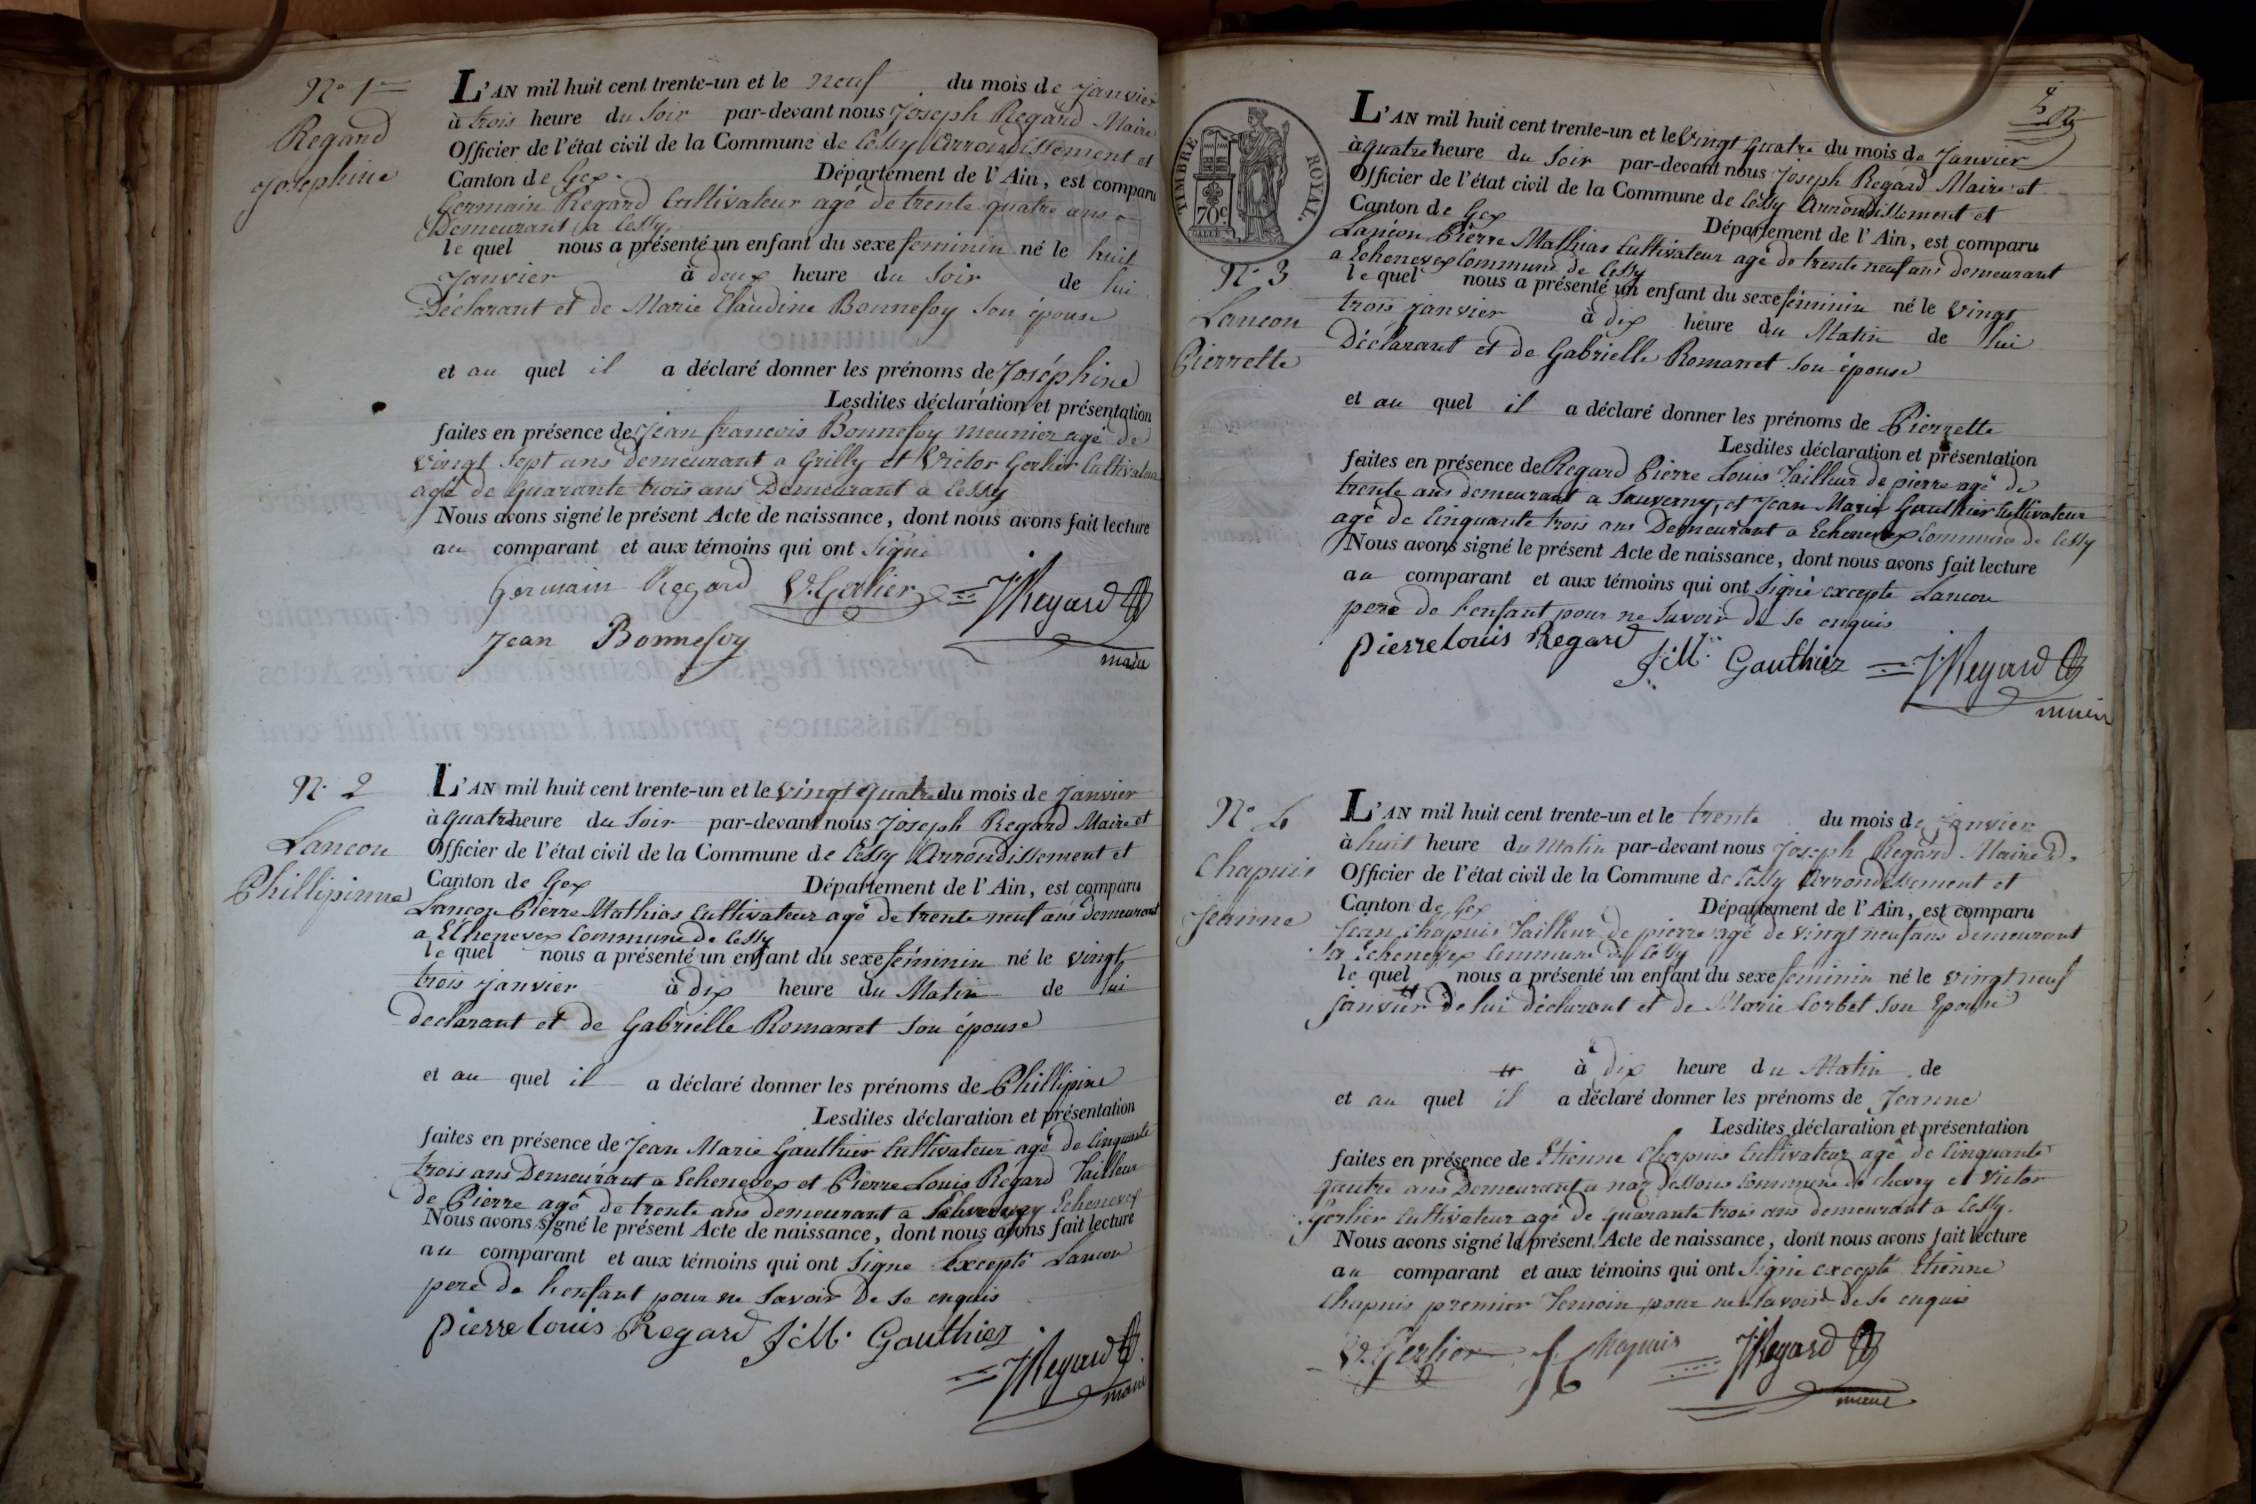 Nº 1er
Regard
Joséphine
L'AN mil huit cent trente-un et le neuf du mois de janvier
à trois heure du Soir par-devant nous Joseph Regard Maire
Officier de l'état civil de la Commune de Cessy Arrondissement et
Canton de Gex. Département de l'Ain, est comparu
Germain Regard Cultivateur agé de trente quatre ans
Demeurant a Cessy
le quel nous a présenté un enfant du sexe feminin né le huit
Janvier à deux heure du Soir de lui
Déclarant et de Marie Claudine Bonnefoy Son épouse
et au quel il a déclaré donner les prénoms de Joséphine
Lesdites déclaration et présentation
faites en présence de Jean francois Bonnefoy meunier agé de
vingt Sept ans demeurant a Grilly et Victor Gerlier Cultivateur
agé de quarante trois ans Demeurant a Cessy
Nous avons signé le présent Acte de naissance, dont nous avons fait lecture
au comparant et aux témoins qui ont Signé
Germain Regard V. Gerlier J Regard
Jean Bonnefoy maire
Nº 2
Lancon
Phillipinne
L'AN mil huit cent trente-un et le vingt quatre du mois de janvier
à quatre heure du Soir par-devant nous Joseph Regard Maire et
Officier de l'état civil de la Commune de Cessy Arrondissement et
Canton de Gex Département de l'Ain, est comparu
Lançon Pierre Mathias Cultivateur agé de trente neuf ans demeurant
a Echenevex Commune de Cessy
le quel nous a présenté un enfant du sexe féminin né le vingt
trois janvier à dix heure du Matin de lui
declarant et de Gabrielle Romanet Son épouse
et au quel il a déclaré donner les prénoms de Phillipine
Lesdites déclaration et présentation
faites en présence de Jean Marie Gauthier Cultivateur agé de Cinquante
trois ans Demeurant a Echenevex et Pierre Louis Regard Tailleur
de Pierre agé de trente ans demeurant a Echenevex
Nous avons signé le présent Acte de naissance, dont nous avons fait lecture
au comparant et aux témoins qui ont Signe Excepté Lancon
pere de lenfant pour ne Savoir De Se enquis
pierre louis Regard J: M. Gauthier
J Regard
maire
TIMBRE ROYAL.
70c
Nº 3
Lancon
Pierrette
L'AN mil huit cent trente-un et le Vingt quatre du mois de Janvier
à quatre heure du Soir par-devant nous Joseph Regard Maire et
Officier de l'état civil de la Commune de Cessy Arrondissement et
Canton de Gex Département de l'Ain, est comparu
Lançon Pierre Mathias Cultivateur agé de trente neuf ans demeurant
a Echenevex Commune de Cessy
le quel nous a présenté un enfant du sexe féminin né le vingt
trois janvier à dix heure du Matin de lui
Déclarant et de Gabrielle Romanet Son épouse
et au quel il a déclaré donner les prénoms de Pierrette
Lesdites déclaration et présentation
faites en présence de Regard Pierre Louis Tailleur de pierre agé de
trente ans demeurant a Sauverny, et Jean Marie Gauthier Cultivateur
agé de Cinquante trois ans Demeurant a Echenevex Commune de Cessy
Nous avons signé le présent Acte de naissance, dont nous avons fait lecture
au comparant et aux témoins qui ont Signé excepté Lancon
pere de lenfant pour ne Savoir de Se enquis
pierre louis Regard
J: M: Gauthier J Regard
maire
Nº 4
Chapuis
Jeanne
L'AN mil huit cent trente-un et le trente du mois de janvier
à huit heure du Matin par-devant nous Joseph Regard Maire
Officier de l'état civil de la Commune de Cessy Arrondissement et
Canton de Gex Département de l'Ain, est comparu
Jean Chapuis Tailleur de pierre agé de vingt neuf ans demeurant
a Echenevex Commune de Cessy
le quel nous a présenté un enfant du sexe feminin né le vingt neuf
janvier de lui déclarant et de Marie Corbet Son Epouse
à dix heure du Matin de
et au quel il a déclaré donner les prénoms de Jeanne
Lesdites déclaration et présentation
faites en présence de Etienne Chapuis Cultivateur agé de Cinquante
quatre ans Demeurant a naz dessous Commune de chevry et Victor
Gerlier Cultivateur agé de quarante trois ans demeurant a Cessy.
Nous avons signé le présent Acte de naissance, dont nous avons fait lecture
au comparant et aux témoins qui ont Signé excepté Etienne
Chapuis premier Temoin pour ne Savoir de Se enquis
V. Gerlier J Chapuis J Regard
maire